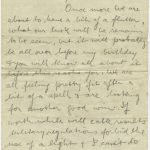 Once more we are
about to have a bit of a flutter,
what our luck will be remains
to be seen, but it will probably
be all over before my birthday
& you will know all about it
before this reaches you. We are
all feeling pretty fit after a
bit of a spell & are looking
for another good win. If
north while will calls
military regulations forbid the
use of a light & I can't do